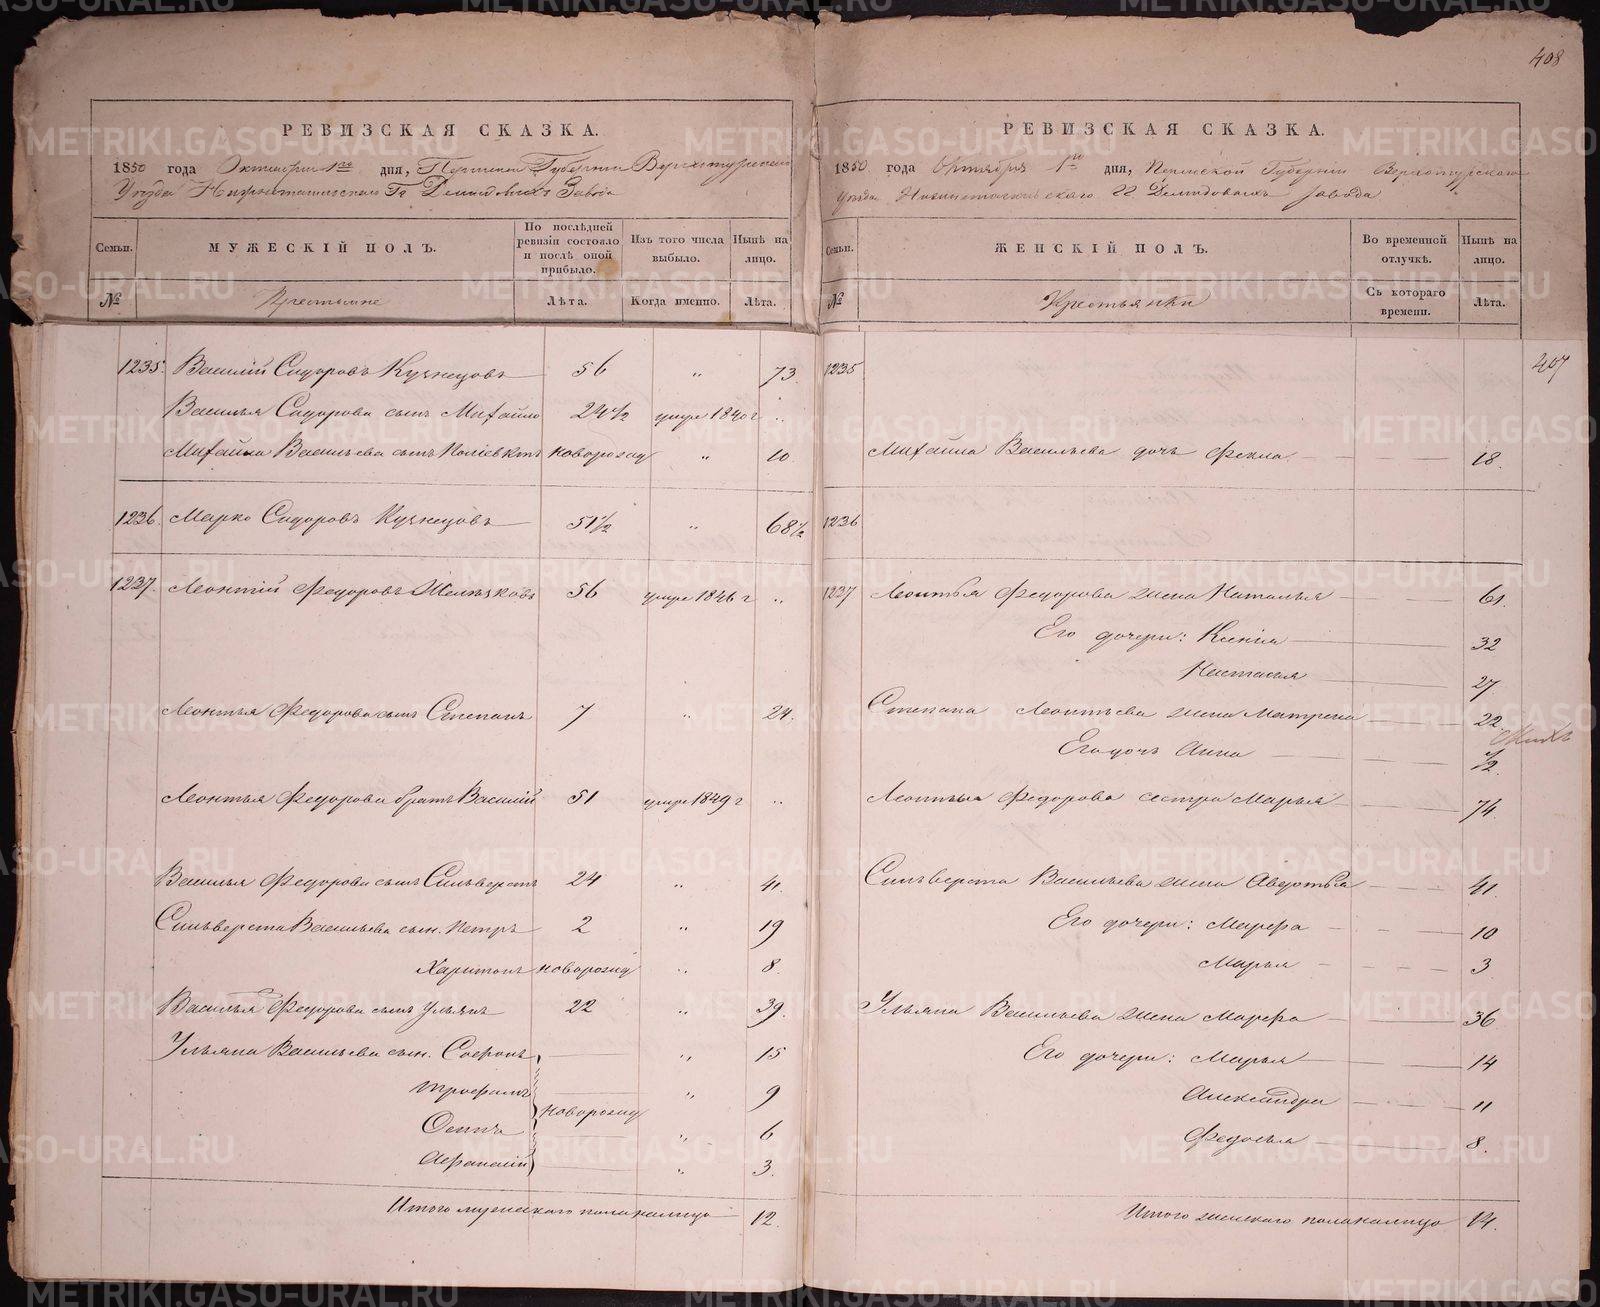 408
РЕВИЗСКАЯ СКАЗКА.
1850 года Октября 1го дня, Пермской Губернии Верхотурскаго
Уѣзда Нижнетагильскаго Гг Демидовыхъ Завода
Семьи.
МУЖЕСКІЙ ПОЛЪ.
По послѣдней ревизіи состояло и послѣ оной прибыло.
Изъ того числа выбыло.
Нынѣ на лицо.
№
Крестьяне
Лѣта.
Когда именно.
Лѣта.
1235. Василій Сидоровъ Кузнецовъ 56 " 73.
Василья Сидорова сынъ Михайло 24½ умре 1840 г "
Михайла Васильева сынъ Поліевктъ новорожд " 10
1236. Марко Сидоровъ Кузнецовъ 51½ " 68½
1237. Леонтій Федоровъ Желѣзковъ 56 умре 1846 г "
Леонтья Федорова сынъ Степанъ 7 " 24.
Леонтья Федорова братъ Василій 51 умре 1849 г "
Василья Федорова сынъ Сильверстъ 24 " 41.
Сильверста Васильева сын. Петръ 2 " 19
Харитонъ новорожд " 8.
Василья Федорова сынъ Ульянъ 22 " 39.
Ульяна Васильева сын. Софронъ " 15
Трофимъ " 9
новорожд
Осипъ " 6
Афанасій " 3.
Итого мужескаго пола налицо 12.
РЕВИЗСКАЯ СКАЗКА.
1850 года Октября 1го дня, Пермской Губерніи Верхотурскаго
Уѣзда Нижнетагильскаго гг Демидовыхъ завода
Семьи.
ЖЕНСКІЙ ПОЛЪ.
Во временной отлучкѣ.
Нынѣ на лицо.
№
Крестьянки
Съ котораго времени.
Лѣта.
407
1235
Михайла Васильева дочь Фекла 18.
1236
1237 Леонтья Федорова жена Наталья 61.
Его дочери: Ксенія 32
Настасья 27
Степана Леонтьева жена Матрена 22.
Его дочь Анна ½
Леонтья Федорова сестра Марья 74.
Сильверста Васильева жена Авдотья 41.
Его дочери: Марфа 10
Марья 3
Ульяна Васильева жена Марфа 36
Его дочери: Марья 14
Александра 11
Федосья 8.
Итого женскаго пола налицо 14.
METRIKI.GASO-URAL.RU